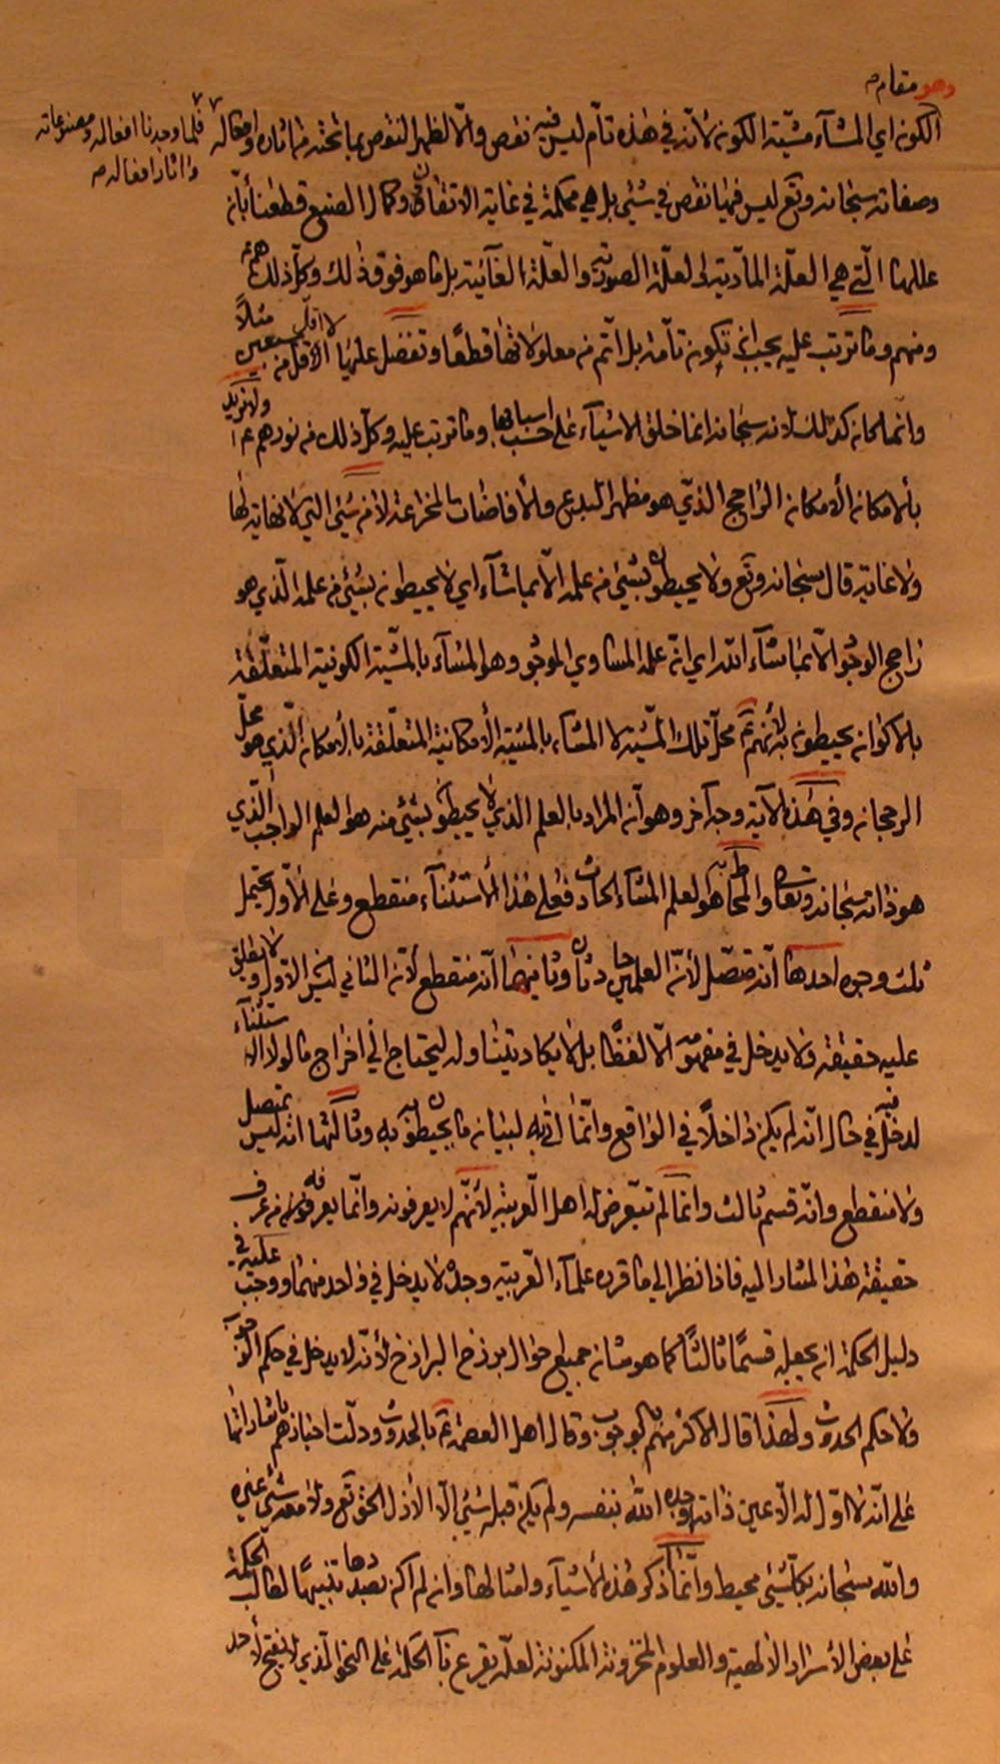 وهو مقام
الكون اي المشآء مشيّة الكون لانّه في هذه تام ليس فيه نقص والّا لظهر النقص بما تحته من اثاره وافعاله
فلما وجدنا افعاله ومصنوعاته
واثار افعاله
وصفاته سبحانه وتع ليس فيها نقص في شئ بل هي محكمة في غاية الاتقان وكمال الصنع قطعنا بانّ
عللها الّتي هي العلّة الماديّة والعلّة الصوريّة والعلّة الغآئية بل ما هو فوق ذلك وكلّ ذلك
ومنهم وما ترتب عليه يجب ان تكون تامّة بل اتم من معلولاتها قطعًا وتفضل عليها الاقل من سبعين مثلاً
وانما كان كذلك لانه سبحانه انما خلق الاشيآء على حسب اسبابها وما ترتب عليه وكلّ ذلك من نورهم ع ولا نريد
بالامكان الّا الامكان الراجح الذي هو مظهر البدع والافاضات المخترعة لا من شئ التي لا نهاية لها
ولا غاية قال سبحانه وتع ولا يحيطون بشئ من علمه الّا بما شآء اي لا يحيطون بشئ من علمه الّذي هو
راجح الوجود الّا بما شآء الله اي انّه علمه المساوي الوجود وهو المشآء بالمشيّة الكونية المتعلّقة
بالاكوان يحيطون به لأنهم ع محلّ تلك المشيّة لا المشآء بالمشيّة الأمكانية المتعلّقة بالأمكان الّذي هو محلّ
الرجحان وفي هذه الآية وجه آخر وهو أنّ المراد بالعلم الذي لا يحيطون بشئ منه هو العلم الواجب الّذي
هو ذاته سبحانه وتعالى والمحاط به هو العلم المشآء الحادث فعلى هذا الأستثنآء منقطع وعلى الأوّل يحتمل
ثلث وجوه احدها انّه متصّل لأنّ العلمين حادثان وثانيهما انّه منقطع لأنّ الثاني غير الاوّل ولا يطلق
عليه حقيقة ولا يدخل في مفهومه الّا لفظًا بل لا يكاد يتناوله ليحتاج الى اخراج ما لولا الاستثنآء
لدخل فيه في حال انّه لم يكن داخلاً في الواقع وانّما اتي به لبيان ما يحيطون به وثالثها انّه ليس بمتصل
ولا منقطع وانّه قسم ثالث وانّما لم يتعرض له اهل العربية لأنّهم لا يعرفونه وانّما يعرفه من عرف
حقيقة هذا المشار اليه فاذا نظر الى ما قرره علمآء العربية وجده لا يدخل في واحد منهما ووجب عليه في
دليل الحكمة ان يجعله قسمًا ثالثًا كما هو شان جميع احوال برزخ البرازخ لأنّه لا يدخل في حكم الوجوب
ولا حكم الحدوث ولهذا قال الاكثر منهم بالوجوب وقال اهل العصمة ع بالحدوث ودلّت اخبارهم باشاراتها
على انّه لا اوّل له الّا عين ذاته اوجده الله بنفسه ولم يكن قبله شئ الّا الأزل الحق تع ولا معه شئ غيره
والله سبحانه بكلّ شئ محيط وانّما اذكر هذه الأشيآء وامثالها وان لم اكن بصددها تنبيهًا لطالب الحكمة
على بعض الأسرار الألهية والعلوم المخزونة المكنونة لعلّه يقرع باب الحكمة على النحو الّذي لا يفتح لأحد